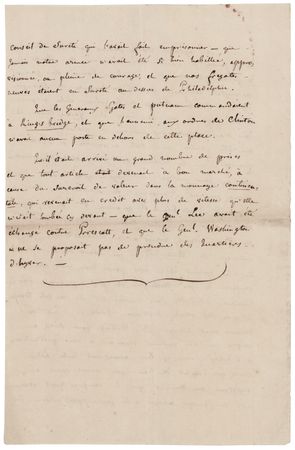 Conseil de Sureté qui l'avait fait emprisonner – que
jamais notre armée n'avait été si bien habillée, appro-
visionnée, ou pleine de courage; et que nos fregates
neuves étaient en Sureté au dessus de Philadelphie.
Que les Generaux Gates et putnam commandaient
à Kings bridge, et que l'ennemi, aux ordres de Clinton
n'avait aucun poste en dehors de cette place.
Qu'il était arrivé un grand nombre de prises
et que tout article était devenu à bon marché, à
cause du surcroit de valeur dans la monnaye continen-
tale, qui revenait en credit avec plus de vitesse qu'elle
n'était tombée cy devant – que le Genl. Lee avait été
échangé contre Prescott, et que le Genl. Washington
ne se proposait pas de prendre des Quartiers
d'hyver. —